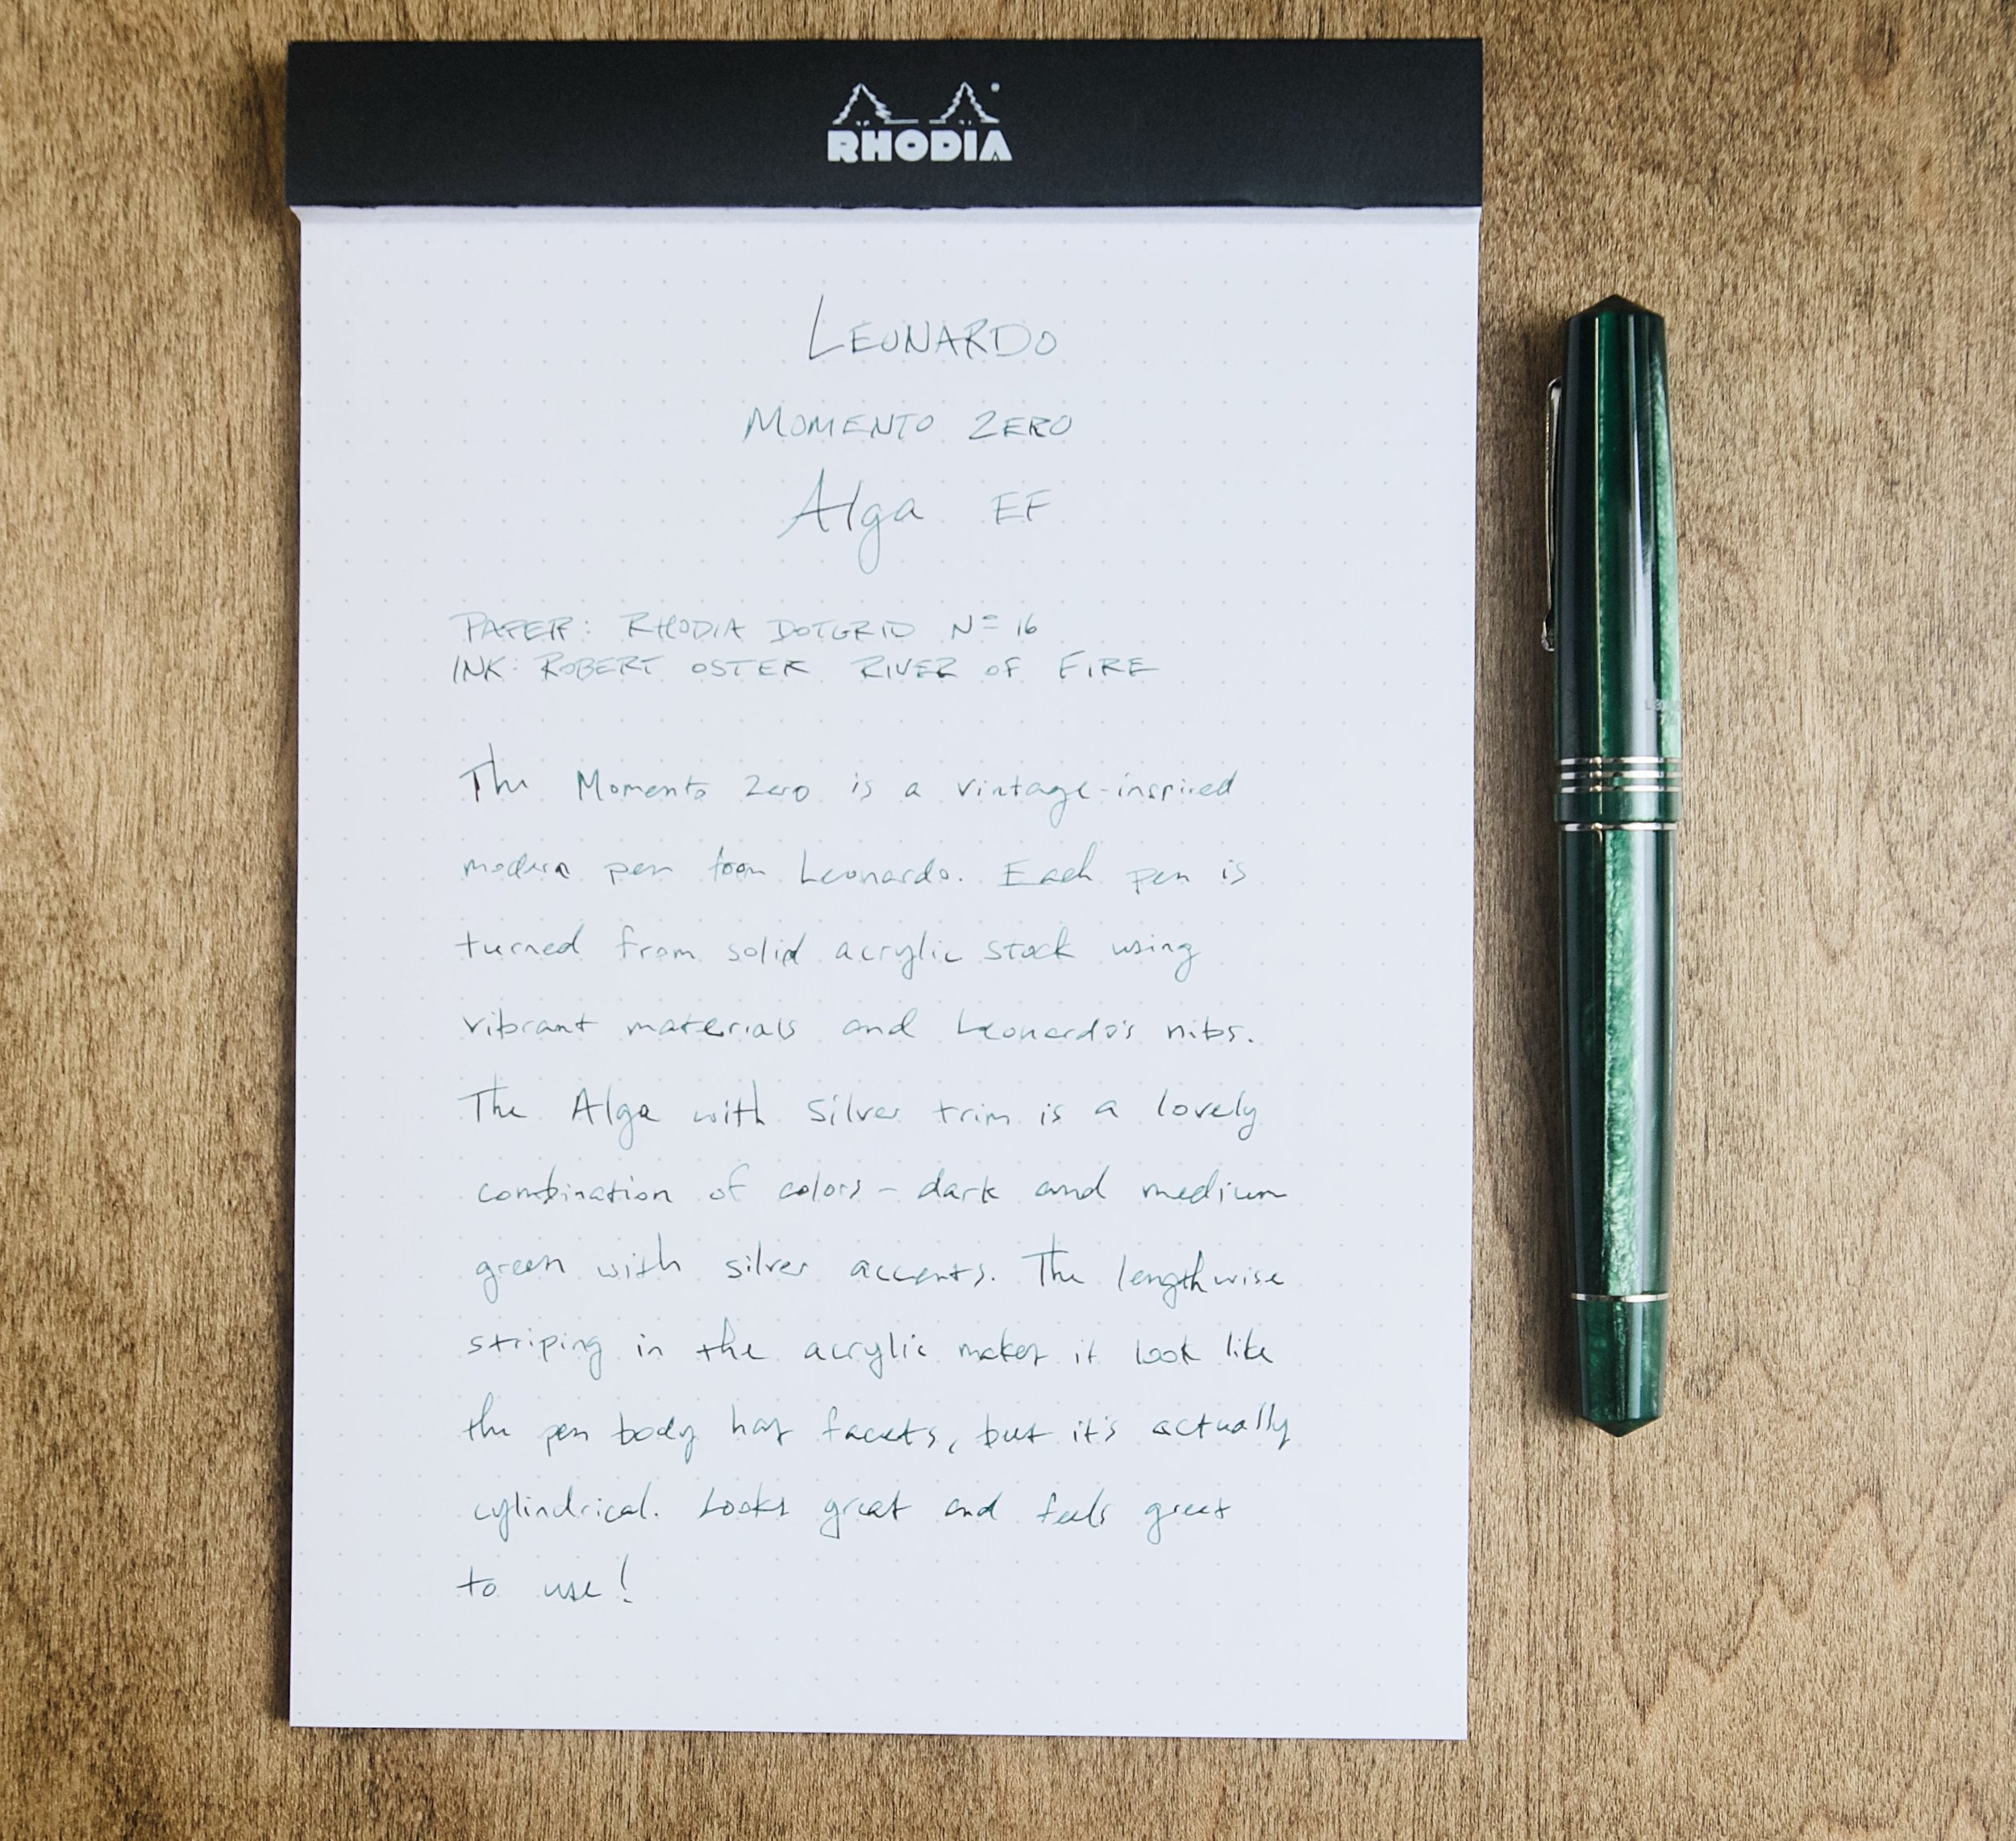 RHODIA
LEONARDO
MOMENTO ZERO
Alga EF
PAPER: RHODIA DOTGRID Nº 16
INK: ROBERT OSTER RIVER OF FIRE
The Momento Zero is a vintage-inspired
modern pen from Leonardo. Each pen is
turned from solid acrylic stock using
vibrant materials and Leonardo's nibs.
The Alga with Silver trim is a lovely
combination of colors - dark and medium
green with silver accents. The lengthwise
striping in the acrylic makes it look like
the pen body has facets, but it's actually
cylindrical. Looks great and feels great
to use!